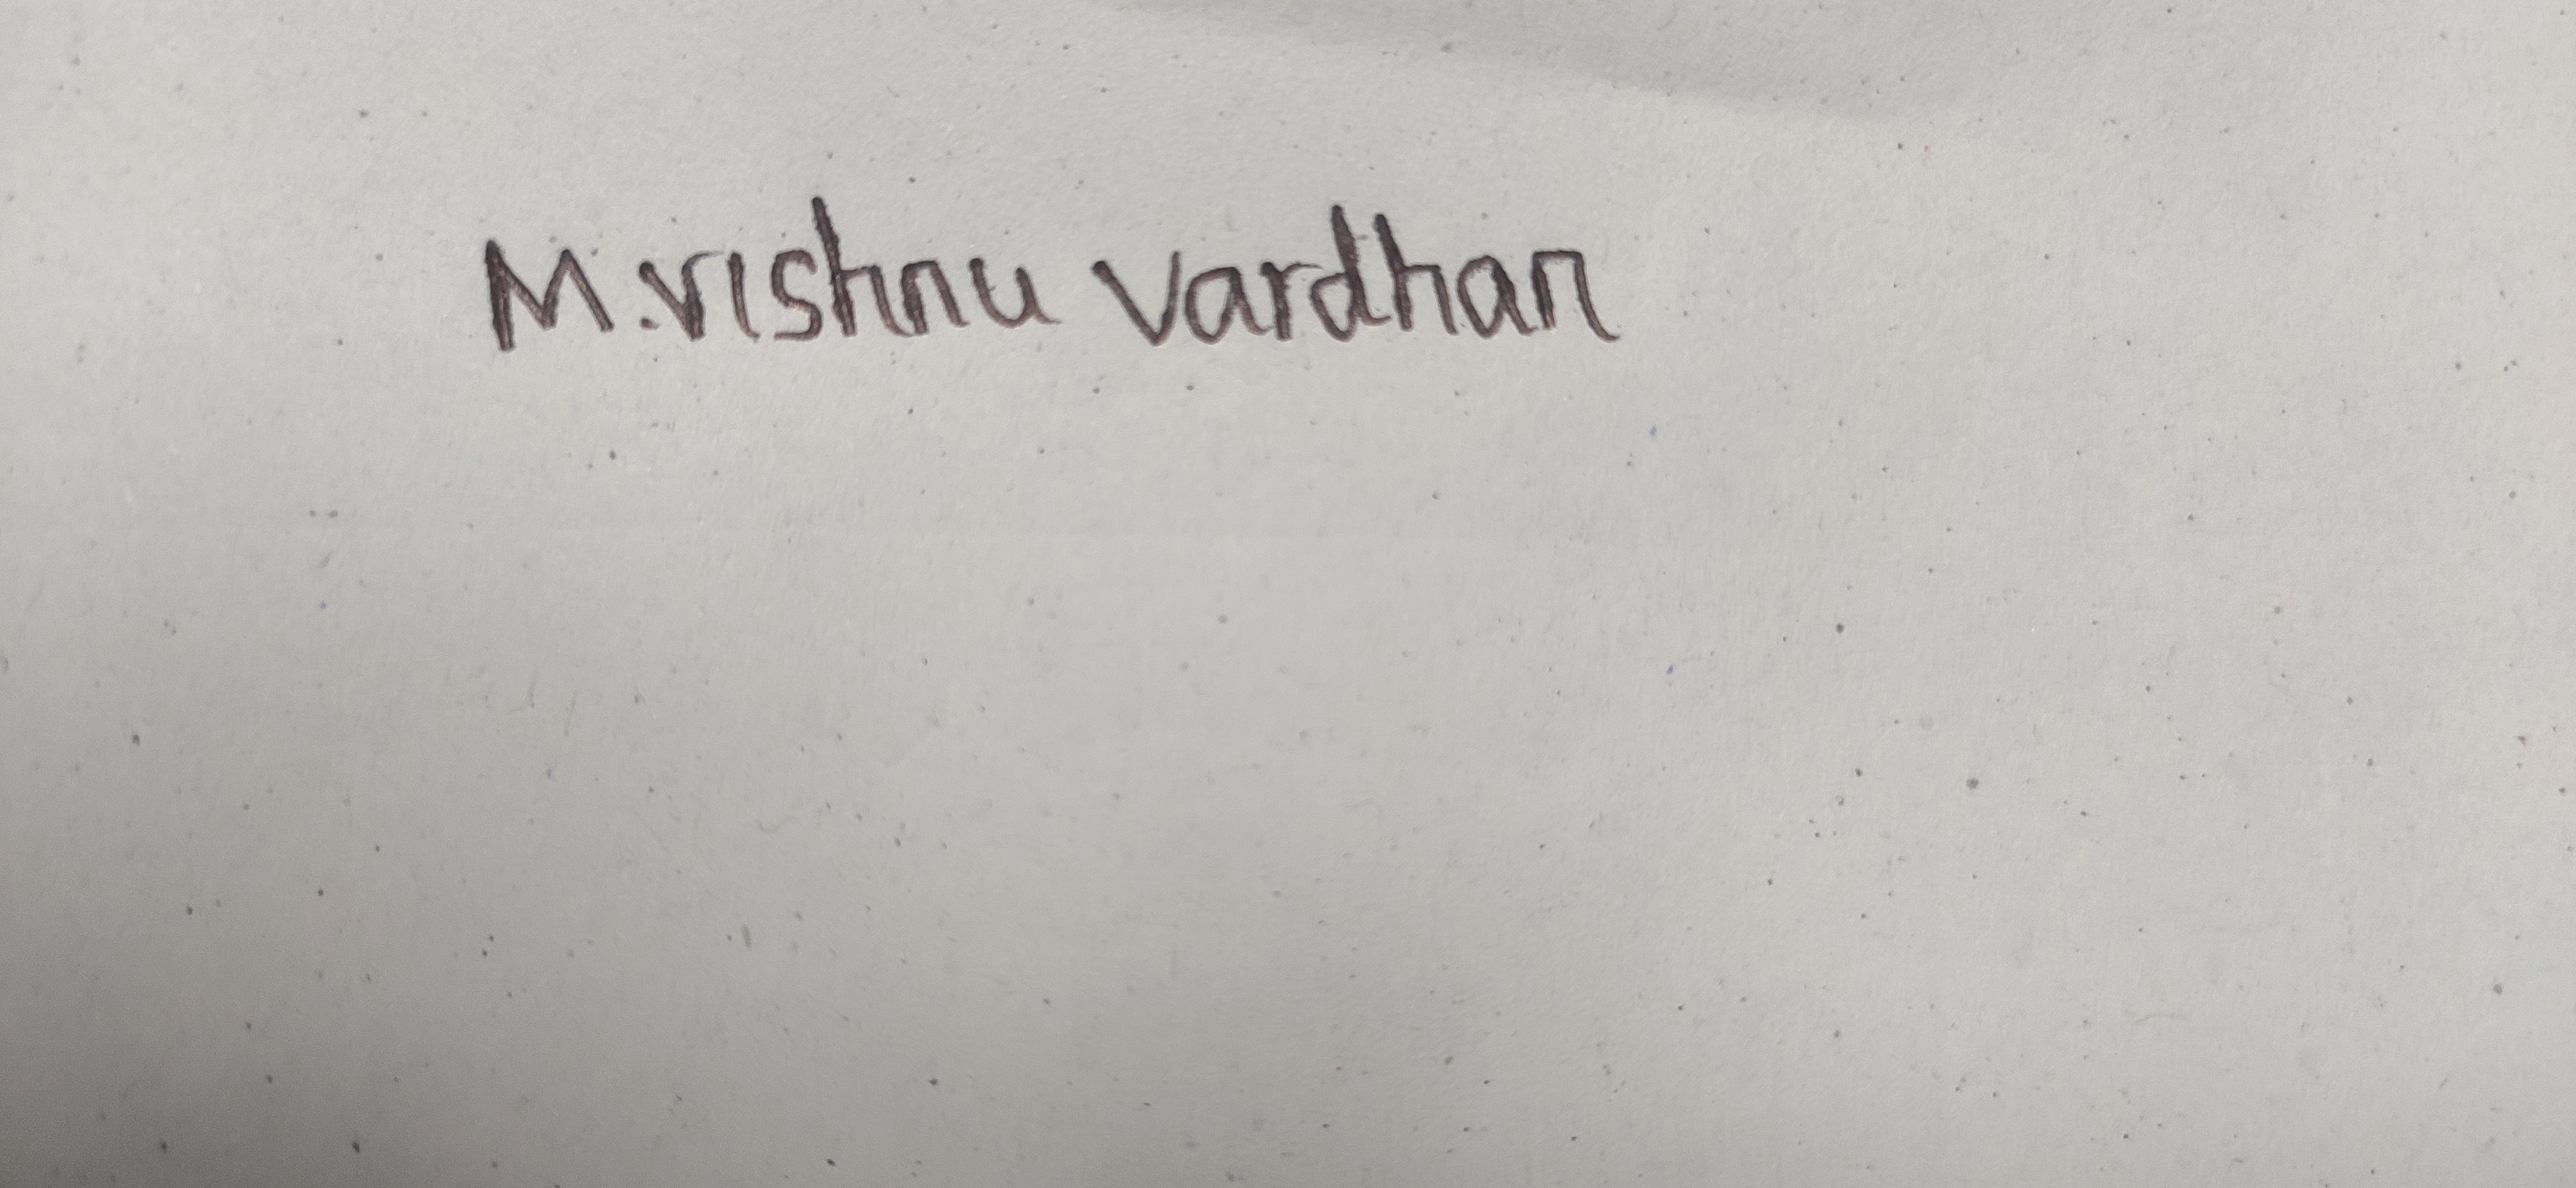 M.vishnu vardhan